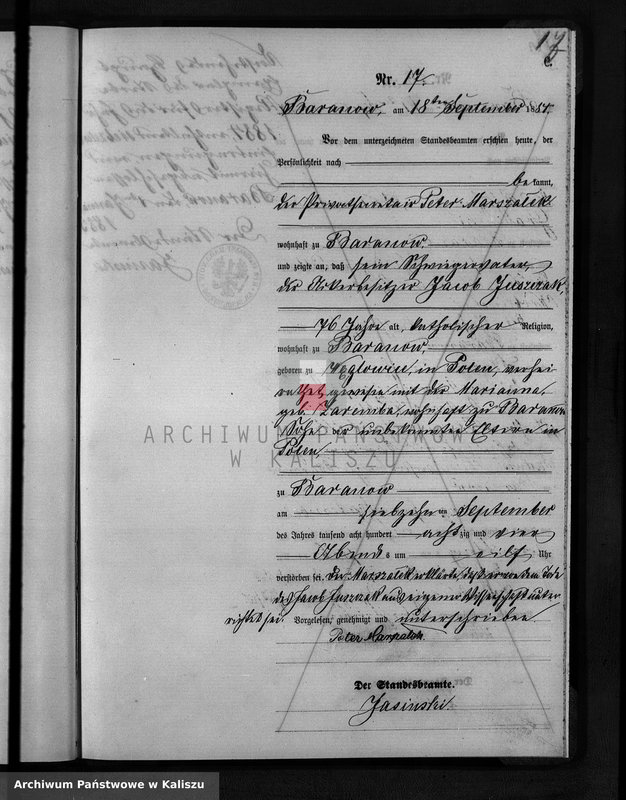 17
C.
Nr. 17.
Baranow, am 18ten September 1884.
Vor dem unterzeichneten Standesbeamten erschien heute, der
Persönlichkeit nach
be kannt,
der Privatsecretair Peter Marszalek
wohnhaft zu Baranow.
und zeigte an, daß sein Schwiegervater,
der Ackerbesitzer Jacob Juszczak,
76 Jahre alt, katholischer Religion,
wohnhaft zu Baranow,
geboren zu Węglowice, in Polen, verhei
rathet gewesen mit der Marianna,
geb. Zaremba, wohnhaft zu Baranow
Sohn der unbekannten Eltern in
Polen
zu Baranow
am siebzehnten September
des Jahres tausend acht hundert achtzig und vier
Abends um eilf Uhr
verstorben sei. Der Marszalek erklärte, daß er von dem Tode
des Jacob Juszczak aus eigener Wissenschaft unter
richtet sei. Vorgelesen, genehmigt und unterschrieben
Peter Marszalek
Der Standesbeamte.
Jasinski
ARCHIWUM PAŃSTWOWE
W KALISZU
Archiwum Państwowe w Kaliszu